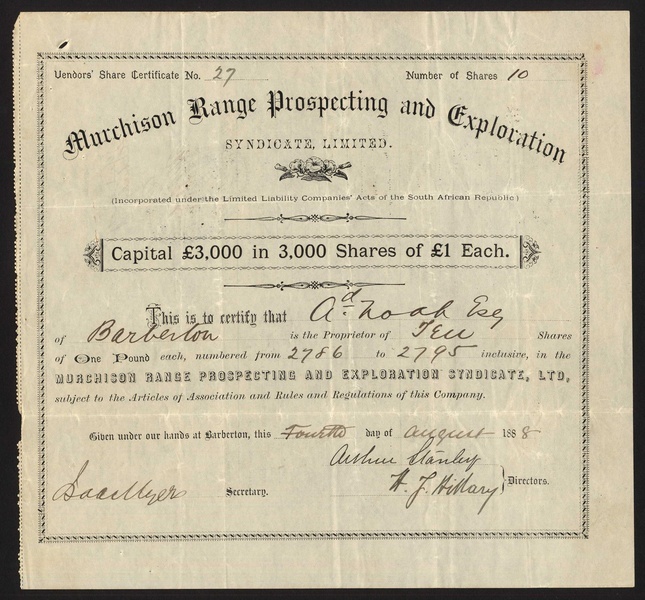 Vendors' Share Certificate No. 27 Number of Shares 10
Murchison Range Prospecting and Exploration
SYNDICATE, LIMITED.
(Incorporated under the Limited Liability Companies' Acts of the South African Republic)
Capital £3,000 in 3,000 Shares of £1 Each.
This is to certify that Ad. Noah Esq
of Barberton is the Proprietor of Ten Shares
of One Pound each, numbered from 2786 to 2795 inclusive, in the
MURCHISON RANGE PROSPECTING AND EXPLORATION SYNDICATE, LTD,
subject to the Articles of Association and Rules and Regulations of this Company.
Given under our hands at Barberton, this Fourth day of August 1888
Arthur Stanley
Isaac Myers Secretary. H. J. Hillary Directors.